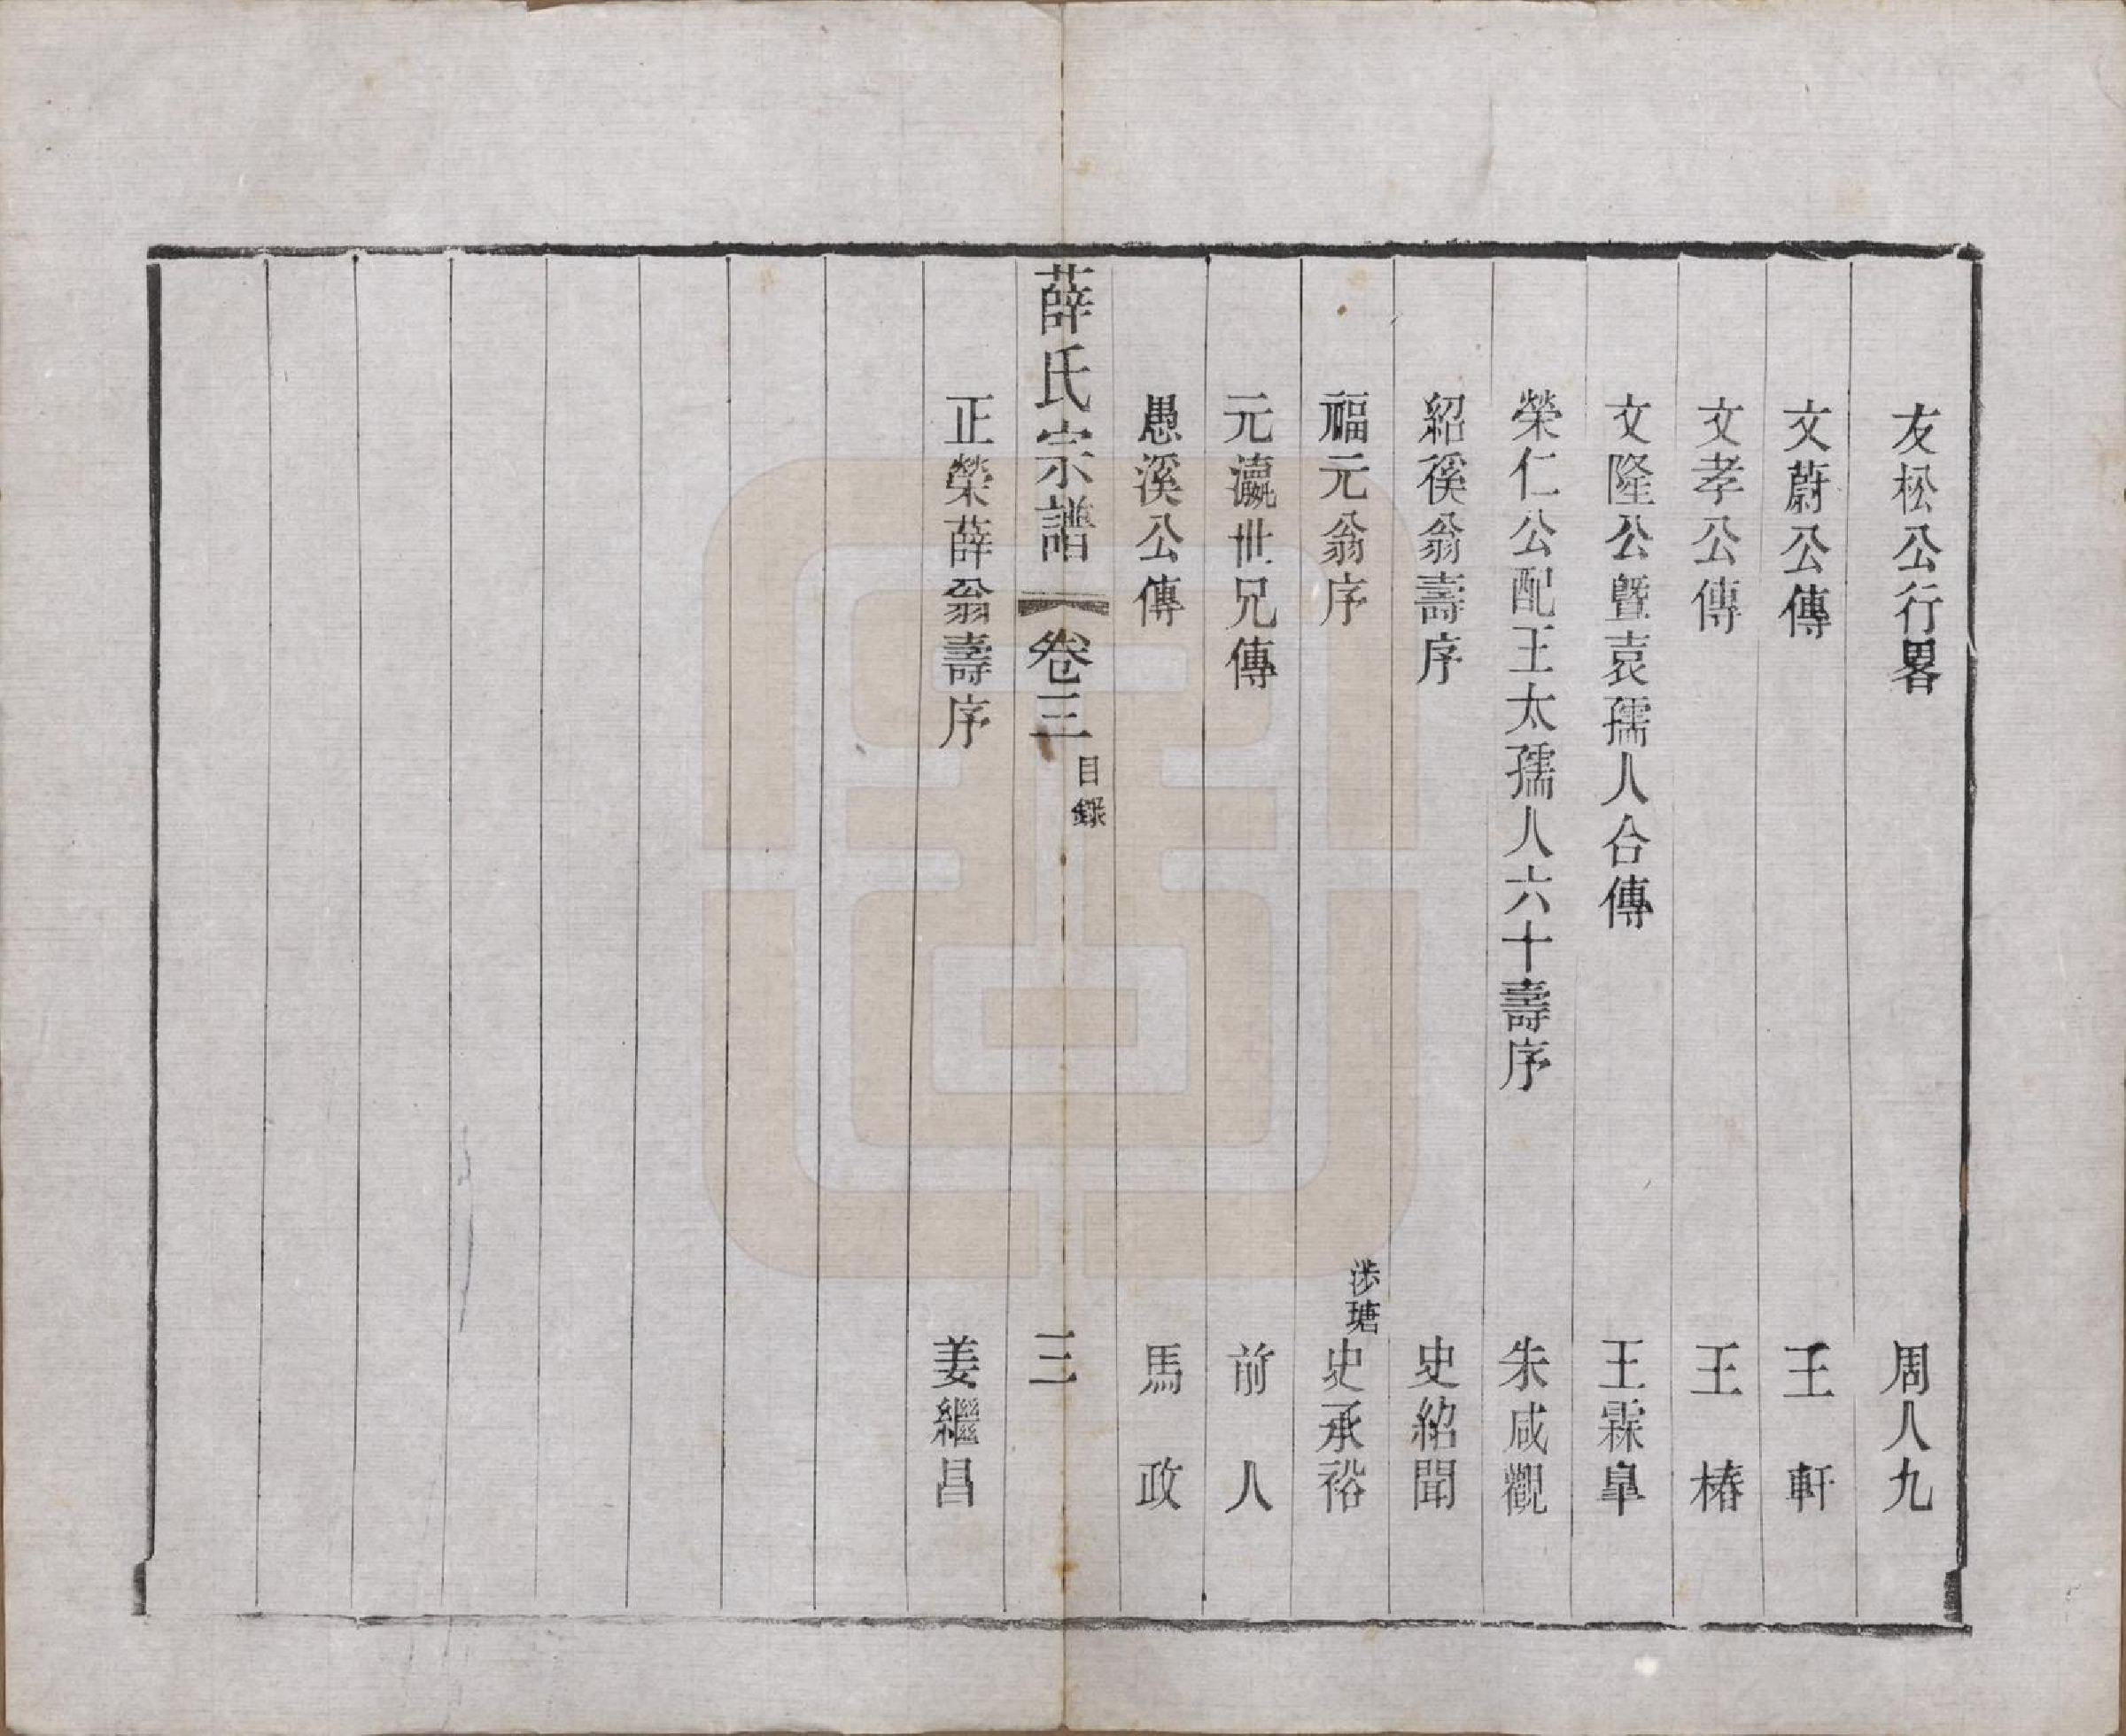 友松公行畧 周人九
文蔚公傳 王軒
文孝公傳 王椿
文隆公暨袁孺人合傳 王霖臯
榮仁公配王太孺人六十壽序 朱咸觀
紹徯翁壽序 史紹聞
福元翁序 涉瑭 史承裕
元瀛世兄傳 前人
愚溪公傳 馬政
薛氏宗譜 卷三 目錄 三
正榮薛翁壽序 姜繼昌